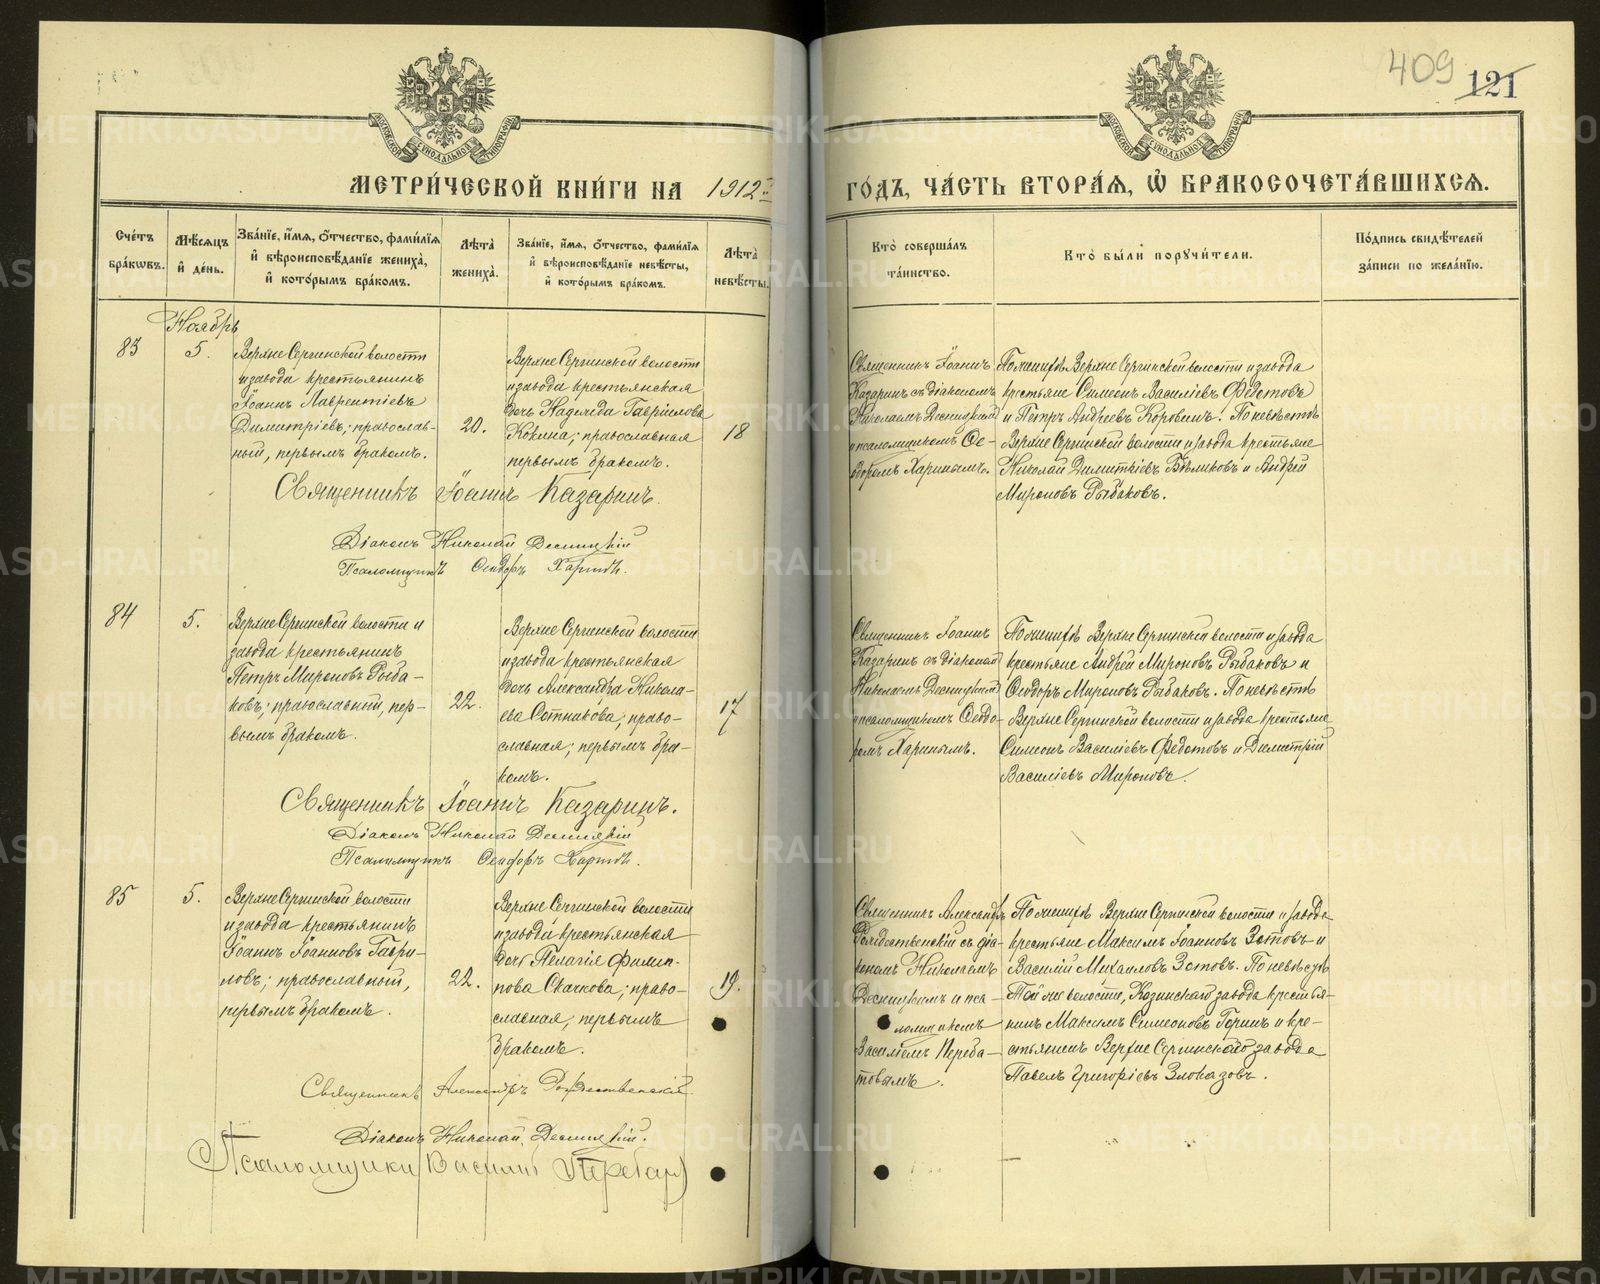 409
121
МЕТРИ́ЧЕСКОЙ КНИ́ГИ НА 1912й
ГО́ДЪ, ЧА́СТЬ ВТОРА́Я, Ѡ БРАКОСОЧЕТА́ВШИХСЯ.
Сче́тъ бра́кѡвъ.
Мѣ́сяцъ и́ де́нь.
Зва́нїе, и́мя, ѻ́тчество, фами́лїя и́ вѣроисповѣ́данїе жениха̀, и́ кото́рымъ бра́комъ.
Лѣ́та жениха̀.
Зва́нїе, и́мя, ѻ́тчество, фами́лїя и́ вѣроисповѣ́данїе невѣ́сты, и́ кото́рымъ бра́комъ.
Лѣ́та невѣ́сты.
Кто̀ соверша́лъ та́инство.
Кто̀ бы́ли пору́чи́тели.
По́дпись свидѣ́телей за́писи по жела́нїю.
Ноябрь
83
5.
Верхне Сергинской волости
и завода крестьянинъ
Іоаннъ Лаврентіевъ
Димитріевъ; православ-
ный, первымъ бракомъ.
20.
Верхне Сергинской волости
и завода крестьянская
дочь Надежда Гавріилова
Козина; православная
первымъ бракомъ.
18
Священникъ Іоаннъ
Казаринъ съ діакономъ
Николаемъ Десницкимъ
и псаломщикомъ Ѳе-
одоромъ Харинымъ.
По женихѣ Верхне Сергинской волости и завода
крестьяне Симеонъ Василіевъ Федотовъ
и Петръ Андреевъ Коровинъ. По невѣстѣ
Верхне Сергинской волости и завода крестьяне
Николай Димитріевъ Бѣликовъ и Андрей
Мироновъ Рыбаковъ.
Священникъ Іоаннъ Казаринъ.
Діаконъ Николай Десницкій
Псаломщикъ Ѳеодоръ Харинъ.
84
5.
Верхне Сергинской волости и
завода крестьянинъ
Петръ Мироновъ Рыба-
ковъ; православный, пер-
вымъ бракомъ.
22.
Верхне Сергинской волости
и завода крестьянская
дочь Александра Никола-
ева Сотникова; право-
славная; первымъ бра-
комъ.
17
Священникъ Іоаннъ
Казаринъ съ діакономъ
Николаемъ Десницкимъ
и псаломщикомъ Ѳеодо-
ромъ Харинымъ.
По женихѣ Верхне Сергинской волости и завода
крестьяне Андрей Мироновъ Рыбаковъ и
Ѳеодоръ Мироновъ Рыбаковъ. По невѣстѣ
Верхне Сергинской волости и завода крестьяне
Симеонъ Василіевъ Федотовъ и Димитрій
Василіевъ Мироновъ.
Священникъ Іоаннъ Казаринъ.
Діаконъ Николай Десницкій
Псаломщикъ Ѳеодоръ Харинъ.
85
5.
Верхне Сергинской волости
и завода крестьянинъ
Іоаннъ Іоанновъ Гаври-
ловъ; православный,
первымъ бракомъ.
22.
Верхне Сергинской волости
и завода крестьянская
дочь Пелагія Филип-
пова Скачкова; право-
славная, первымъ
бракомъ.
19.
Священникъ Александръ
Рождественскій съ діа-
кономъ Николаемъ
Десницкимъ и пса-
ломщикомъ
Василіемъ Переба-
товымъ.
По женихѣ Верхне Сергинской волости и завода
крестьяне Максимъ Іоанновъ Зотовъ и
Василій Михаиловъ Зотовъ. По невѣстѣ
Той же волости, Козинскаго завода крестья-
нинъ Максимъ Симеоновъ Горинъ и кре-
стьянинъ Верхне Сергинскаго завода
Павелъ Григоріевъ Злоказовъ.
Священникъ Александръ Рождественскій.
Діаконъ Николай Десницкій.
Псаломщикъ Василій
METRIKI.GASO-URAL.RU